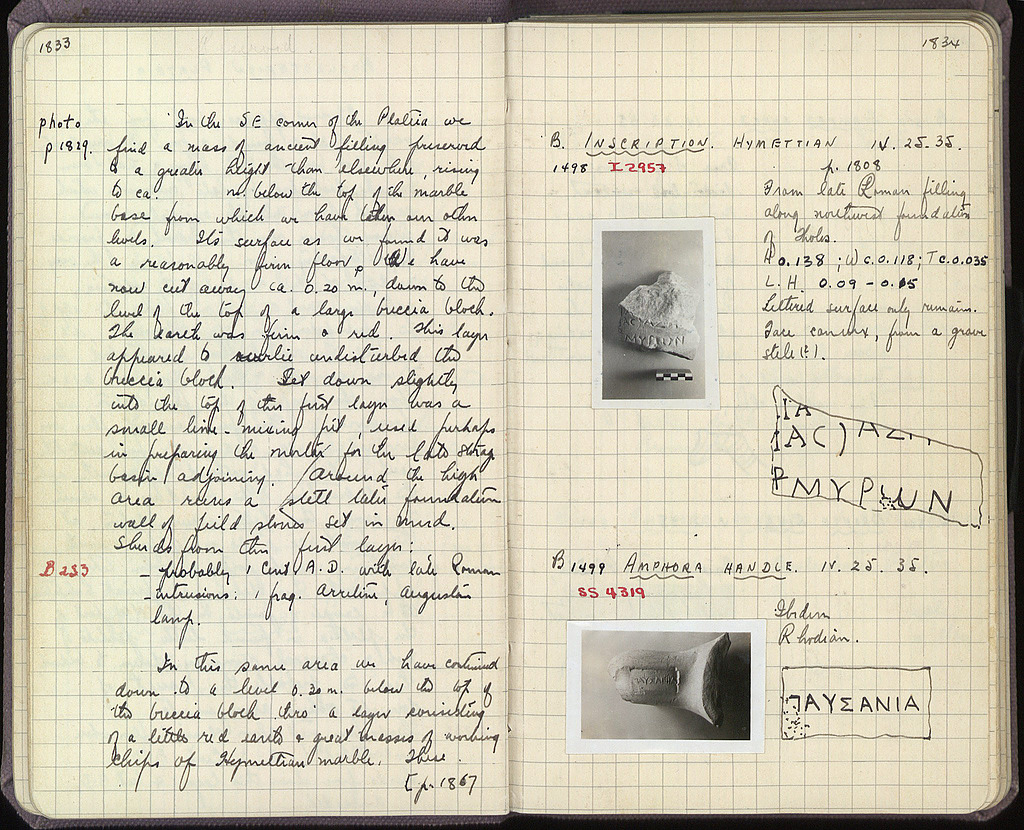 1833
photo
p 1829.
In the SE corner of the Plateia we
find a mass of ancient filling preserved
to a greater height than elsewhere, rising
to ca. m. below the top of the marble
base from which we have taken our other
levels. Its surface as we found it was
a reasonably firm floor. We have
now cut away ca. 0.20 m., down to the
level of the top of a large breccia block.
The earth was firm & red. This layer
appeared to overlie undisturbed the
breccia block. Set down slightly
into the top of this first layer was a
small lime-mixing pit, used perhaps
in preparing the mortar for the late
basin adjoining. Around the high
area runs a late foundation
wall of field stones set in mud.
Sherds from this first layer:
B 253
– probably 1 Cent. A.D. with late Roman
– intrusions: 1 frag. Arretine, Augustan
lamp.
In this same area we have continued
down to a level 0.20 m. below the top of
the breccia block thro' a layer consisting
of a little red earth & great masses of working
chips of Hymettian marble. These
[p. 1867
1834
B. INSCRIPTION. HYMETTIAN IV. 25. 35.
1498 I 2957
p. 1808
From late Roman filling
along northwest foundation
of Tholos.
H 0.138; W c. 0.118; T c. 0.035
L. H. 0.09 – 0.15
Lettered surface only remains.
Face convex, from a grave
stele (?).
ΙΑ
ΜΥΡ ΩΝ
B 1499 AMPHORA HANDLE. IV. 25. 35.
SS 4319
Ibidem
Rhodian.
ΠΑΥΣΑΝΙΑ